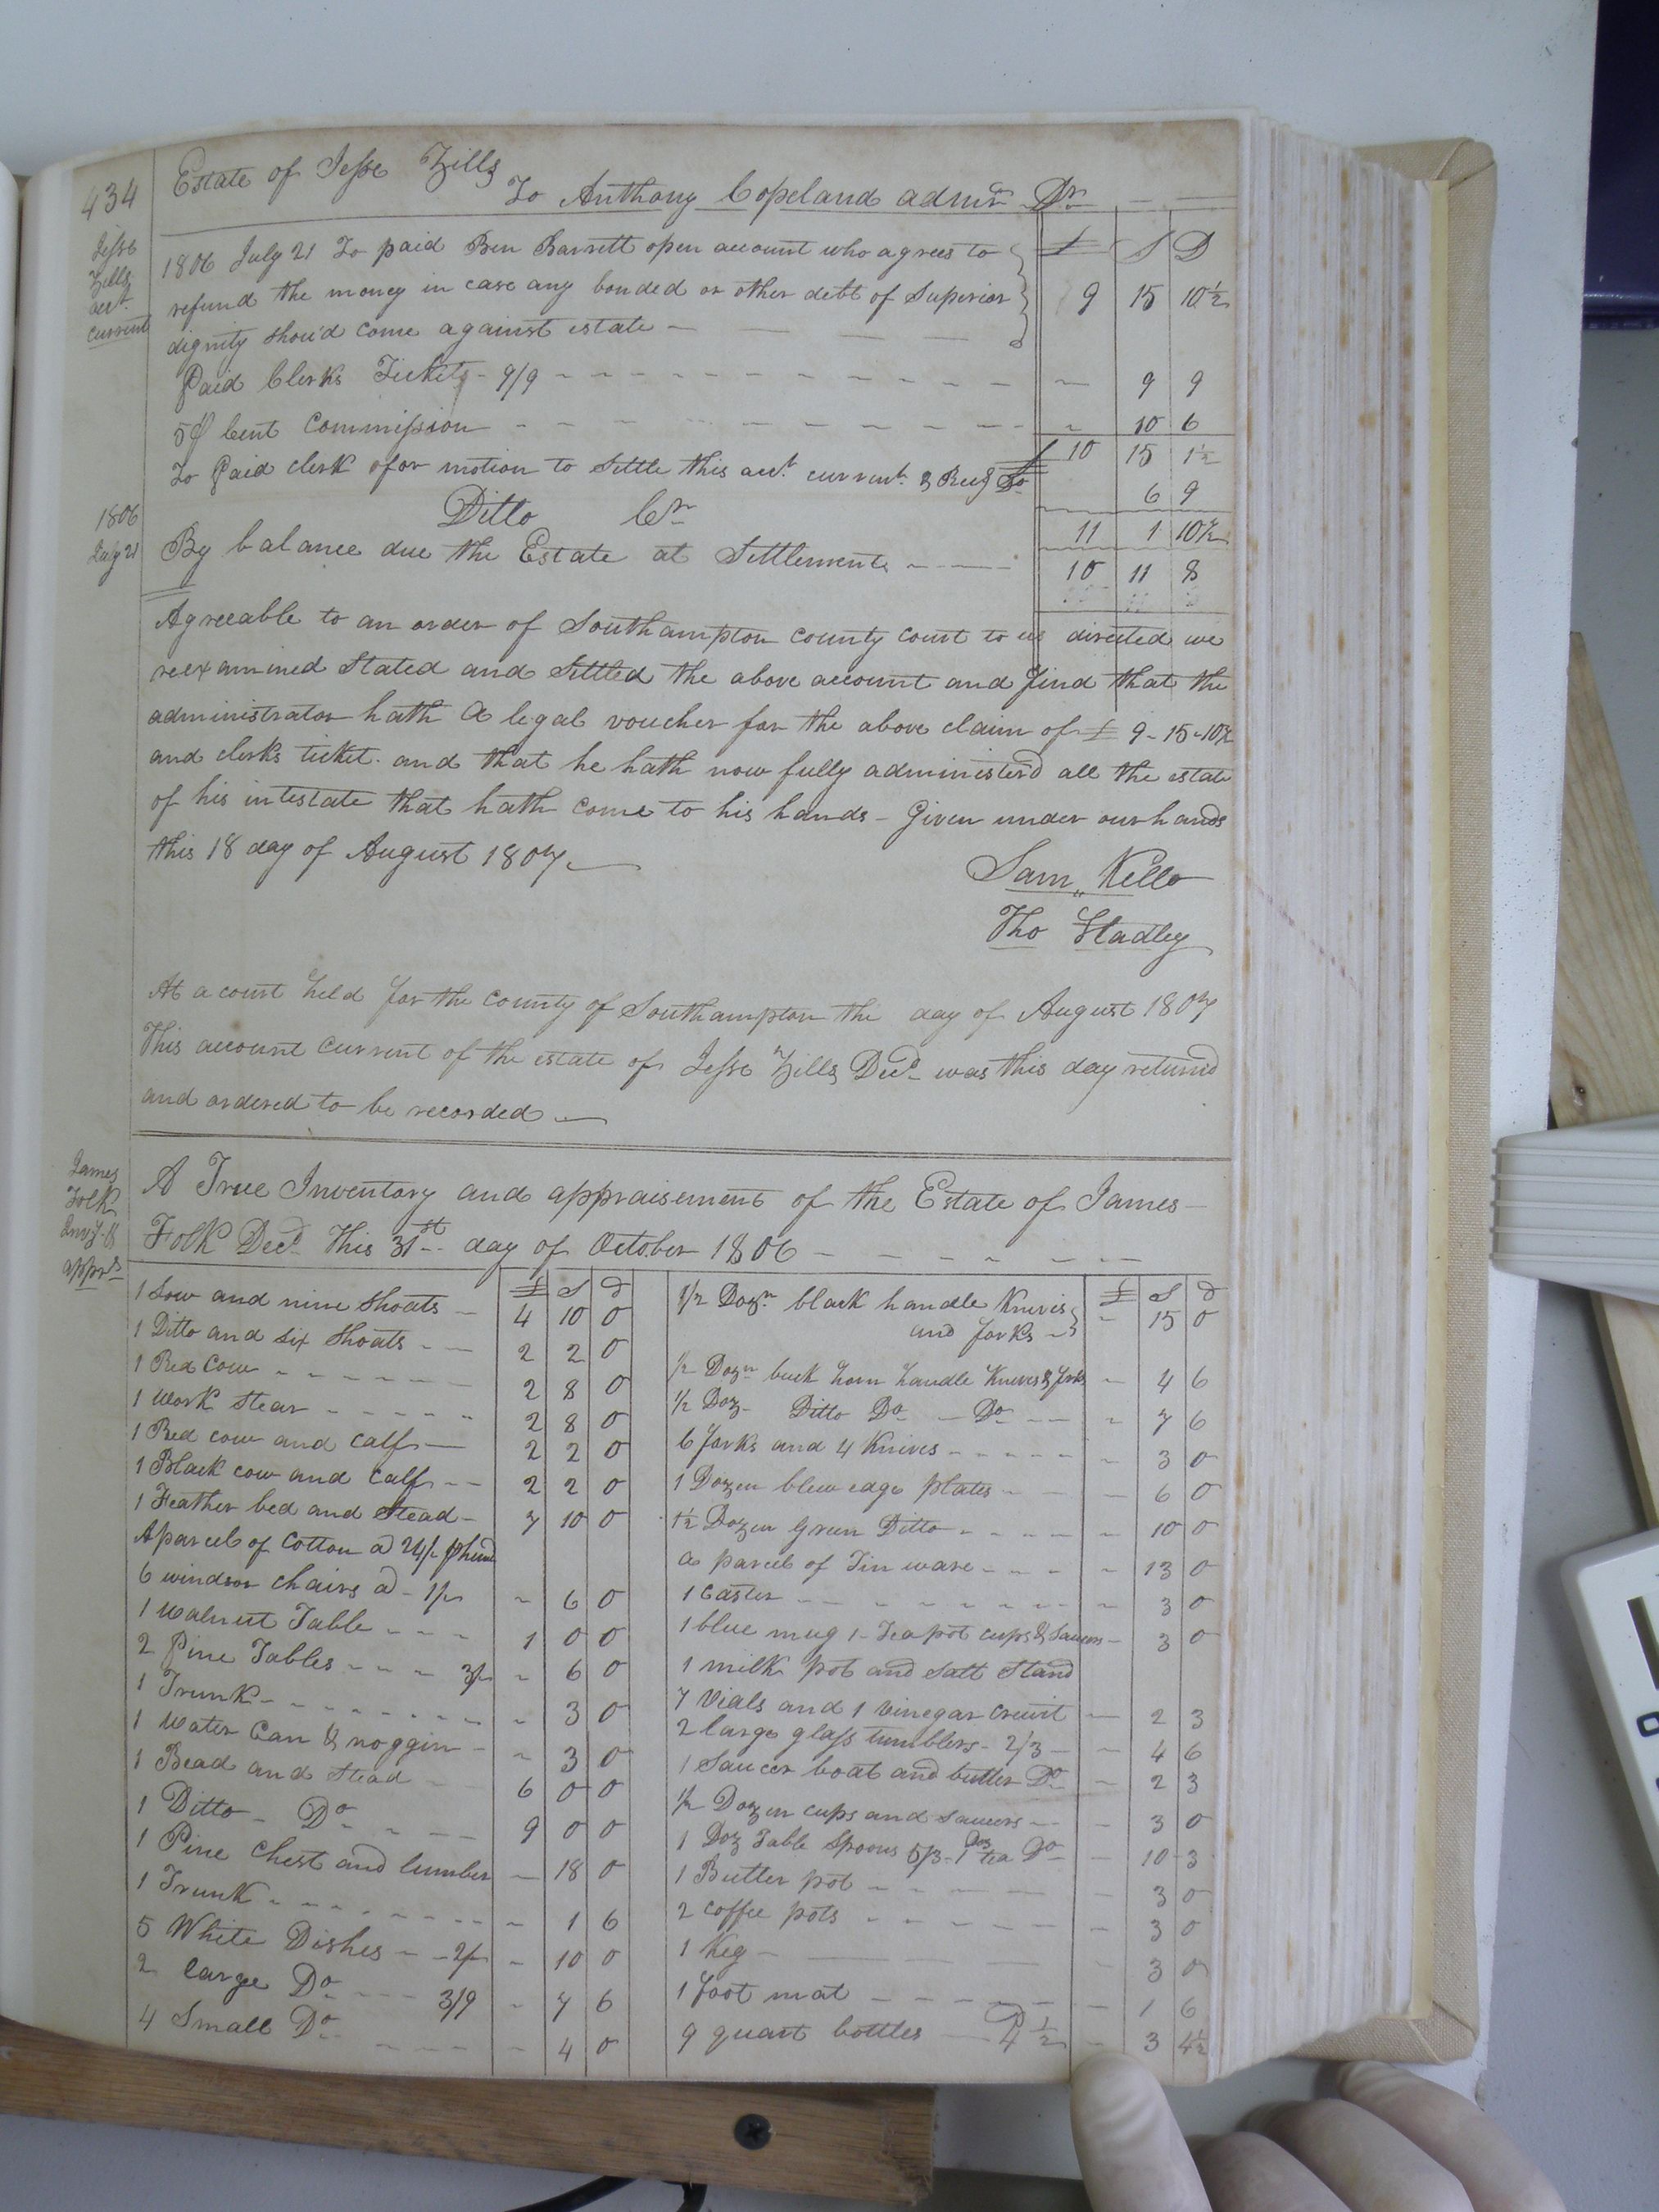 434
Estate of Jesse Zills
To Anthony Copeland admr. Dr.
Jesse
Zills
acct.
current
£ S D
1806 July 21 To paid Ben Barrett open account who agrees to
refund the money in case any bonded or other debt of Superior 9 15 10½
dignity shou'd come against estate
Paid Clerks Tickets - 9/9 9 9
5 ⅌ Cent Commission 10 6
£ 10 15 1½
To Paid clerk for motion to settle this acct. current & Recg Do 6 9
Ditto Cr.
11 1 10½
1806
July 21
By balance due the Estate at Settlement 10 11 8
Agreeable to an order of Southampton county court to us directed we
reexamined Stated and Settled the above account and find that the
administrator hath a legal voucher for the above claim of £ 9-15-10½
and clerks ticket. and that he hath now fully administer'd all the estate
of his intestate that hath come to his hands - Given under our hands
this 18 day of August 1807
Sam,, Kello
Tho
At a court held for the county of Southampton the day of August 1807
This account current of the estate of Jesse Zills Decd. was this day returned
and ordered to be recorded
James
Folk
Invy. &
apprs.
A True Inventory and appraisement of the Estate of James
Folk Decd. this 31st day of October 1806
£ S d
1 Sow and nine shoats 4 10 0
1 Ditto and six shoats 2 2 0
1 Red Cow 2 8 0
1 Work Stear 2 8 0
1 Red cow and calf 2 2 0
1 Black cow and calf 2 2 0
1 Feather bed and Stead 7 10 0
A parcel of Cotton a 24/ ⅌ hund
6 windsor chairs a 1/ 6 0
1 Walnut Table 1 0 0
2 Pine Tables 3/ 6 0
1 Trunk 3 0
1 Water Can & noggin 3 0
1 Bead and Stead 6 0 0
1 Ditto Do 9 0 0
1 Pine Chest and lumber 18 0
1 Trunk 1 6
5 White Dishes 2/ 10 0
2 large Do 3/9 7 6
4 Small Do 4 0
£ S d
1½ Dozn. black handle Knives
and forks 15 0
½ Dozn buck horn handle Knives & forks 4 6
½ Doz Ditto Do Do 7 6
6 forks and 4 Knives 3 0
1 Dozen blew edge plates 6 0
1½ Dozen Green Ditto 10 0
a parcel of Tin ware 13 0
1 Caster 3 0
1 blue mug 1 Tea pot cups & Saucers 3 0
1 milk pot and Salt Stand
7 Vials and 1 vinegar crewit 2 3
2 large glass tumblers 2/3 4 6
1 Saucer boat and butter Do 2 3
½ Dozen cups and Saucers 3 0
1 Doz Table Spoons 5/3 - 1 Doz tea Do 10 3
1 Butter pot 3 0
2 coffee pots 3 0
1 Keg 3 0
1 foot mat 1 6
9 quart bottles 4½ 3 4½